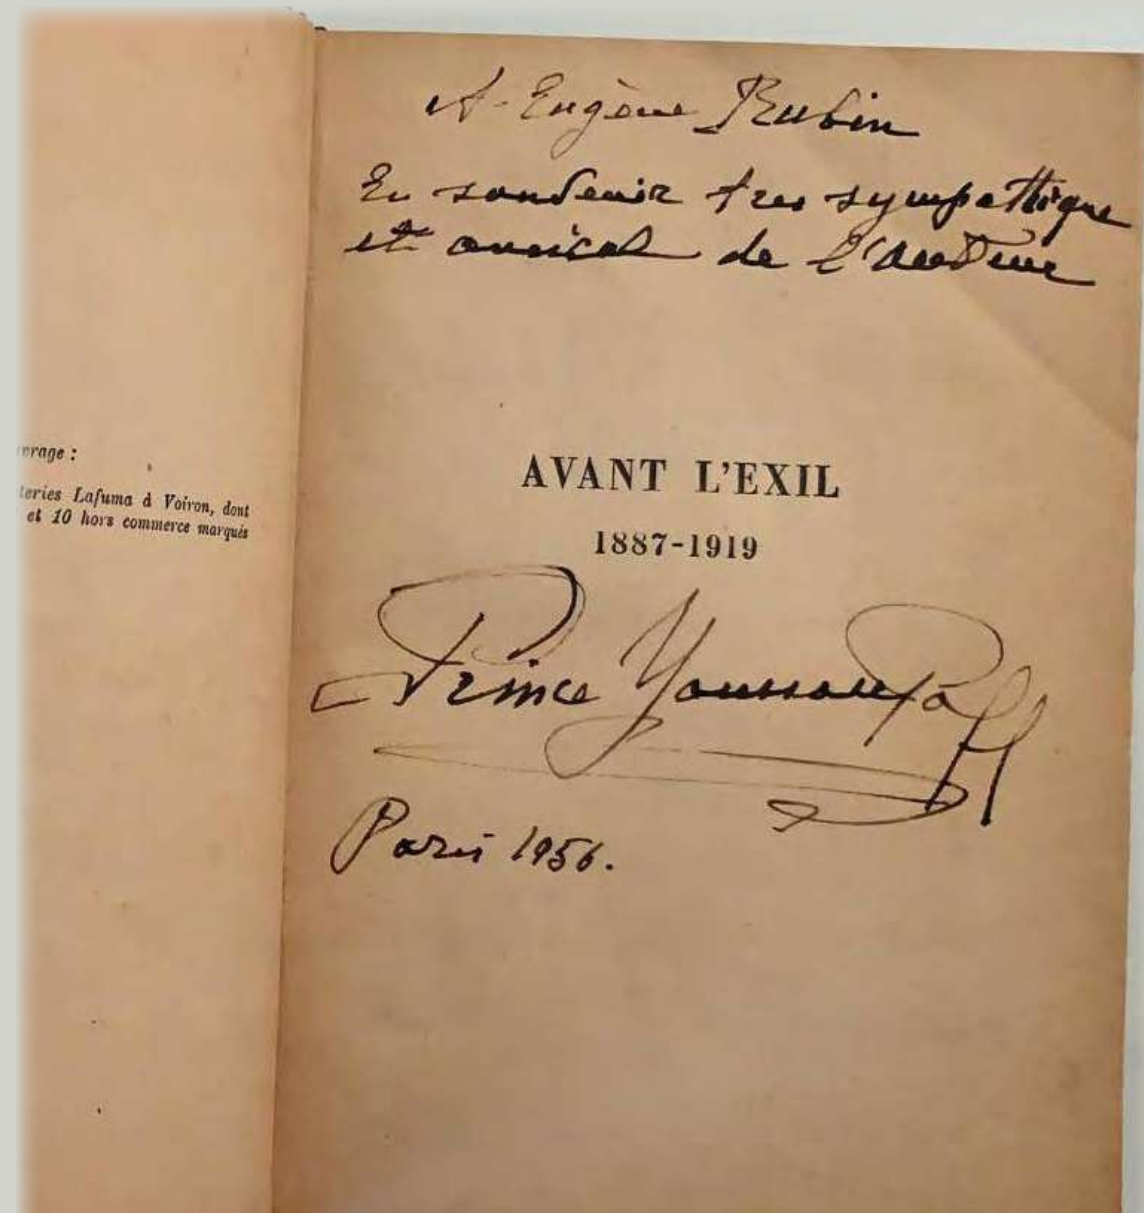 vrage :
teries Lafuma à Voiron, dont
et 10 hors commerce marqués
A Eugène Rubin
En souvenir tres sympathique
et amical de l'auteur
AVANT L'EXIL
1887-1919
Prince Youssoupoff
Paris 1956.